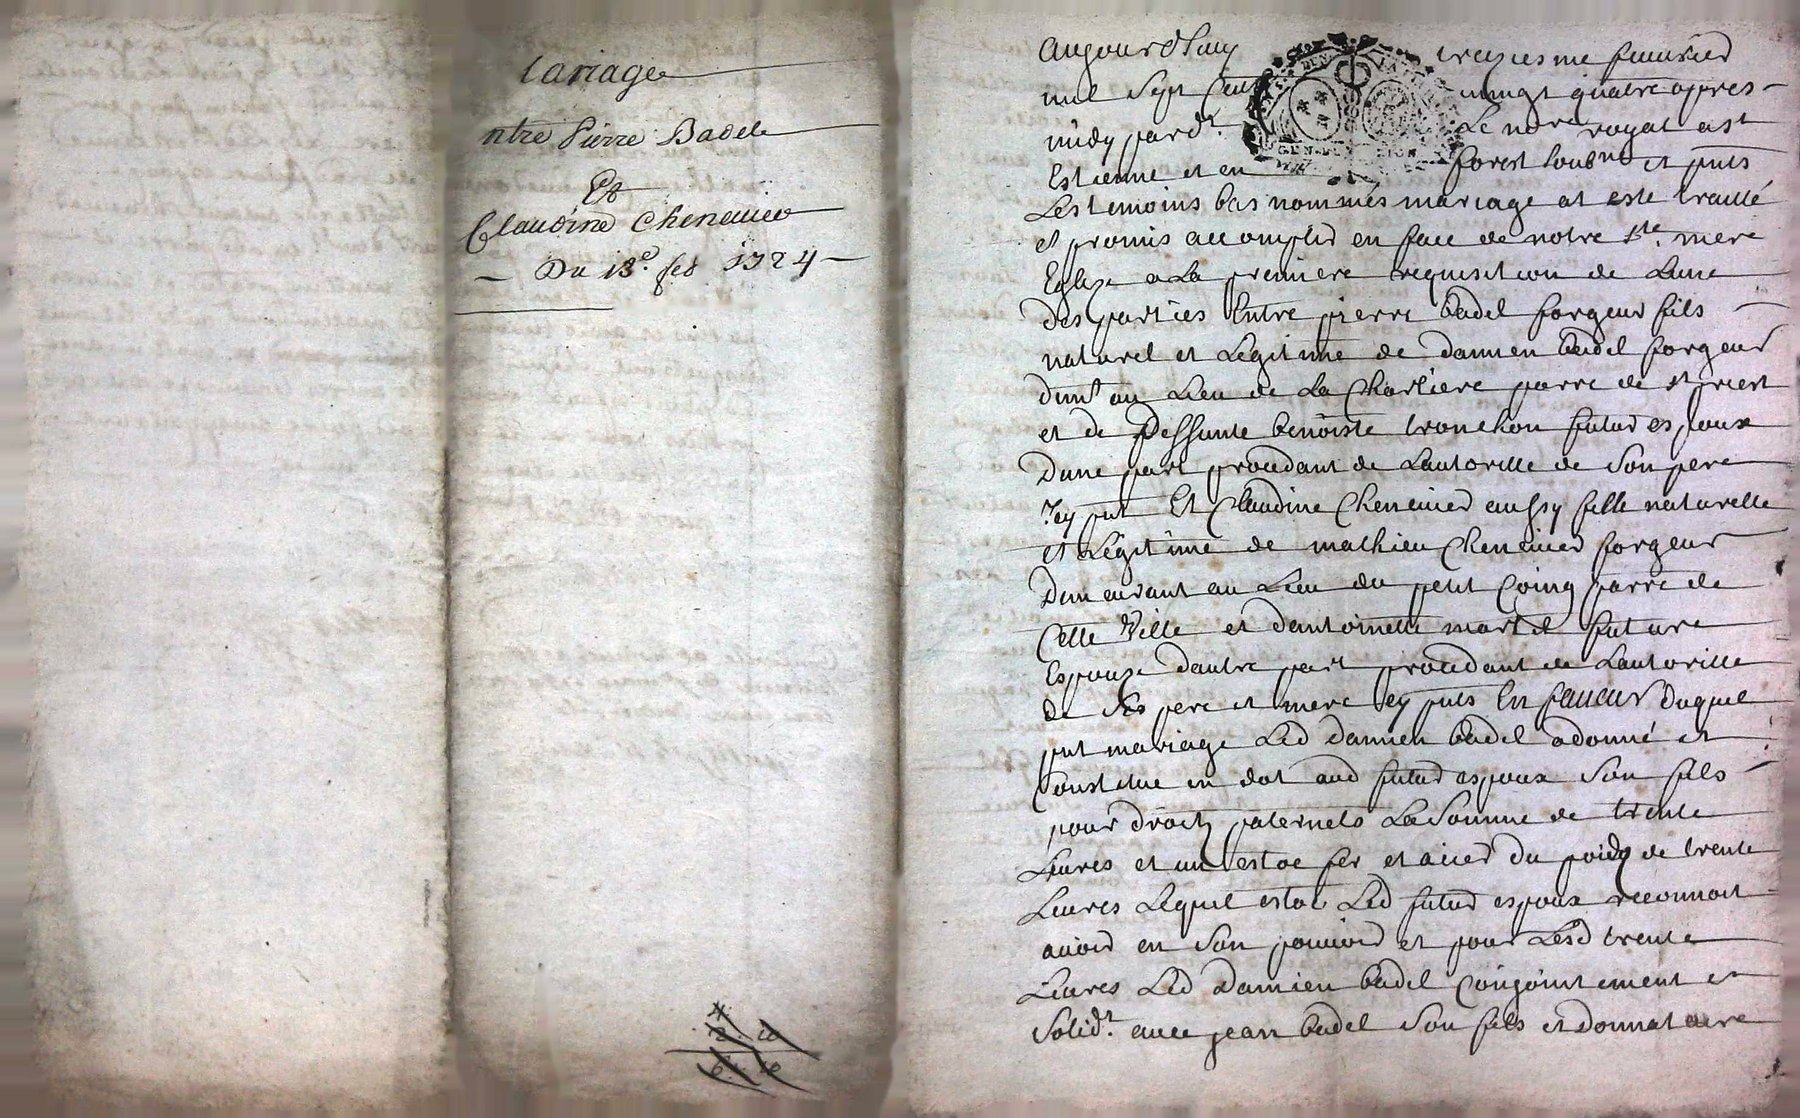 Mariage
Entre Pierre Badel
Et
Claudine Chenevier
— Du 13e. feb 1724 —
Aujourdhuy treziesme feuvrier
mil Sept Cent vingt quatre apres
midy pardt. Le nore royal a st
Estienne et en forest soubné et pnts
Les temoins bas nommés mariage at esté traitté
et promis accomplir en face de notre ste. mere
Eglize a La premiere requisition de Lune
des parties Entre pierre badel forgeur fils
naturel et Legitime de damien badel forgeur
dmt au Lieu de La Chartiere parre de st priest
et de deffunte benoiste tronchon futur espoux
Dune part procedant de Lautorille de Son pere
Icy pnt Et Claudine Chenevier aussy fille naturelle
et Legitime de mathieu Chenevier forgeur
Demeurant au Lieu du petit Coing parre de
Cette Ville et dantoinette martel future
Espouze dautre part procedant de Lautorille
de Ses pere et mere Icy pnts En faveur duquel
pnt mariage Led damien badel a donné et
Constitue en dot aud futur espoux Son fils
pour droits paternels La Somme de trente
Livres et un estoc fer et acier du poidz de trente
Livres Lequel estoc Led futur espoux reconnoit
avoir en Son pouvoir et pour Lesd trente
Livres Led Damien badel Conjointement et
Solidt. avec jean badel Son fils et donnataire